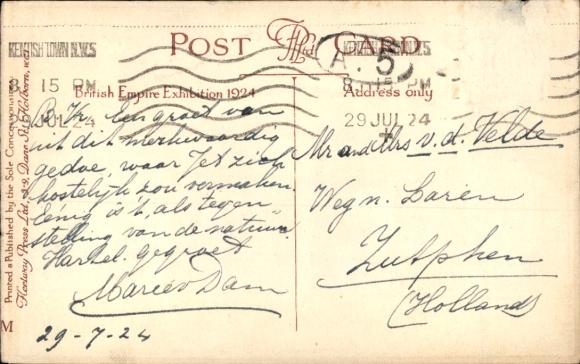 POST CARD
FHLd
A.5
KENTISH TOWN N.W.5
8 15 PM
29 JUL 24
British Empire Exhibition 1924
Address only
8 15 PM
29 JUL 24
B. Vr. Een groet van
uit dit merkwaardig
gedoe, waar Jet zich
kostelijk zou vermaken.
Eenig is 't, als tegen
stelling van de natuur.
Hartel. gegroet
Marcus Dam
29-7-24
Mr and Mrs v. d. Velde
Weg n. Laren
Zutphen
(Holland)
Printed & Published by the Sole Concessionaires
Fleetway Press Ltd. 3-9, Dane St. Holborn, W.C.1
M